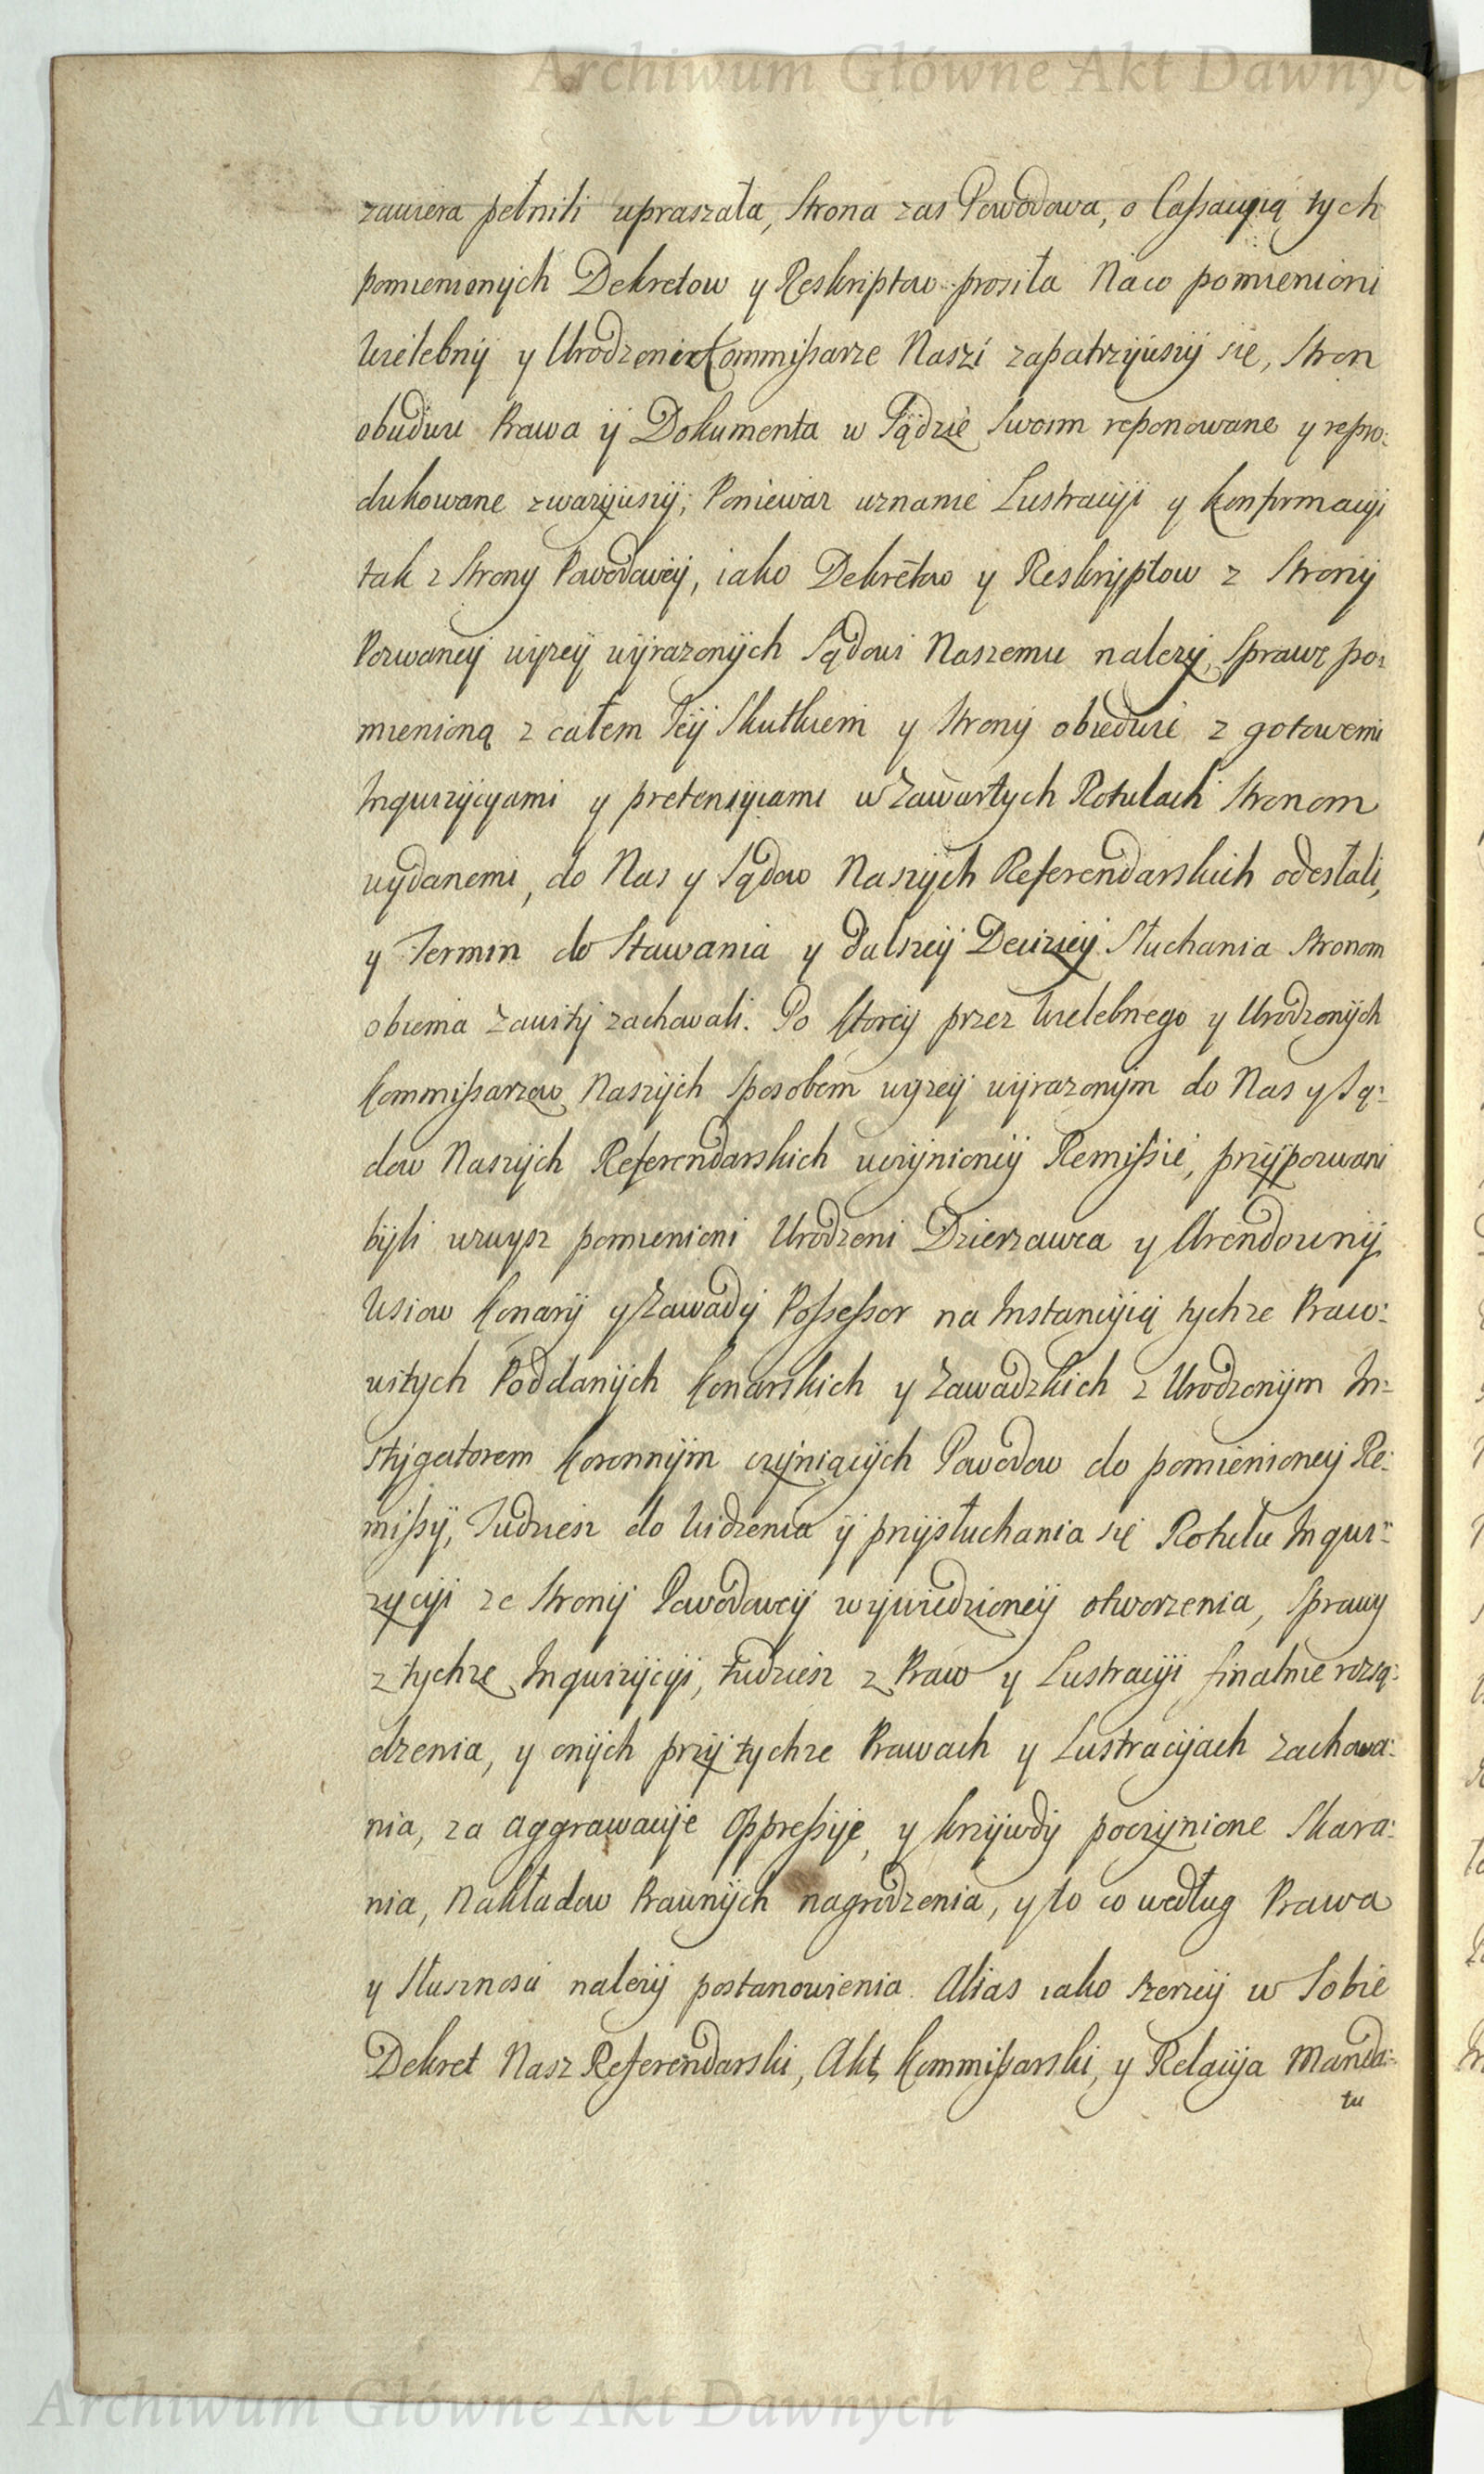 Archiwum Główne Akt Dawnych
zawiera pełnili upraszała, Strona zas Powodowa, o Cassacyią tych
pomienionych Dekretow y Reskriptow prosiła Naco pomienioni
Wielebny y Urodzeni Kommissarze Naszi zapatrzywszy się, Stron
obudwu Prawa y Dokumenta w Sądzie Swoim reponowane y repro:
dukowane zwazywszy; Poniewaz uznanie Lustracyi y Konfirmacyi
tak z Strony Powodowey, iako Dekretow y Reskryptow z Strony
Pozwaney wyzey wyrazonych Sądowi Naszemu nalezy, Sprawę po:
mienioną z całem Jey Skutkiem y Strony obiedwie z gotowemi
Inquizycyami y pretensyiami w Zawartych Rotulach Stronom
wydanemi, do Nas y Sądow Naszych Referendarskich odesłali,
y Termin do Stawania y dalszey Decizyey Słuchania Stronom
obiema zawity zachowali. Po Ktorey przez Wielebnego y Urodzonych
Kommissarzow Naszych Sposobem wyzey wyrazonym do Nas y Są:
dow Naszych Referendarskich uczynioney Remissie, przypozwani
byli wzwysz pomienioni Urodzeni Dzierzawca y Arendowny
Wsiow Konary y Zawady Possessor na Instancyią tychze Praw:
witych Poddanych Konarskich y Zawadzkich z Urodzonym In:
stygatorem Koronnym czyniących Powodow do pomienioney Re:
missy, Tudziesz do Widzenia y przysłuchania się Rotułu Inqui:
zycyi ze Strony Powodowey wywiedzioney otworzenia, Sprawy
z tychze Inquizycyi, tudziesz z Praw y Lustracyi finalnie rozsą:
dzenia, y onych przy tychze Prawach y Lustracyiach zachowa:
nia, za aggrawacyie oppressyie, y krzywdy poczynione Skara:
nia, Nakładow Prawnych nagrodzenia, y to co według Prawa
y Słusznosci nalezy postanowienia. Alias iako szerzey w Sobie
Dekret Nasz Referendarski, Akt Kommissarski, y Relacyja Manda:
tu
Archiwum Główne Akt Dawnych